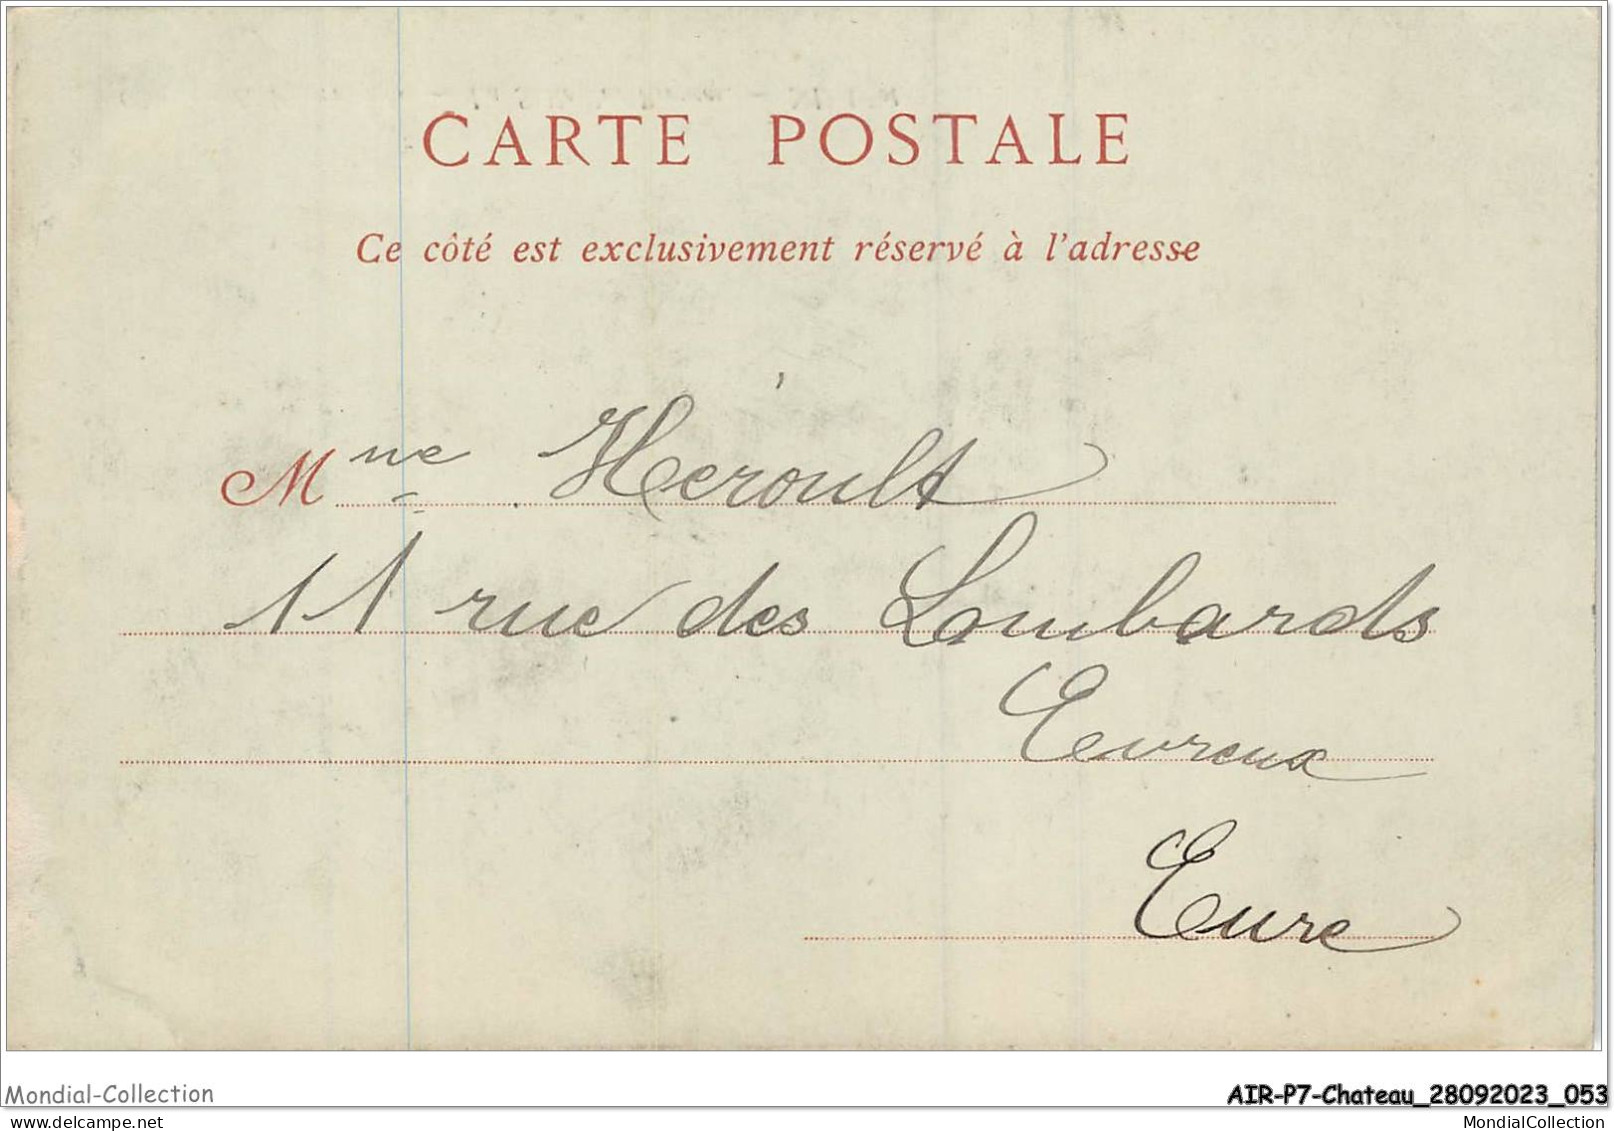 CARTE POSTALE
Ce côté est exclusivement réservé à l'adresse
Mme Héroult
11 rue des Lombards
Evreux
Eure
Mondial-Collection
AIR-P7-Chateau_28092023_053
www.delcampe.net
MondialCollection